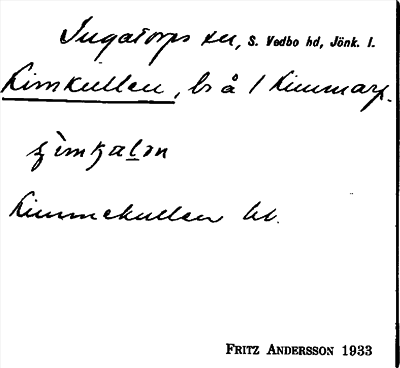 Ingatorps sn, S. Vedbo hd, Jönk. l.
Kimkullen, bs å / Kimmarp.
Kimmekullen bl.
FRITZ ANDERSSON 1933